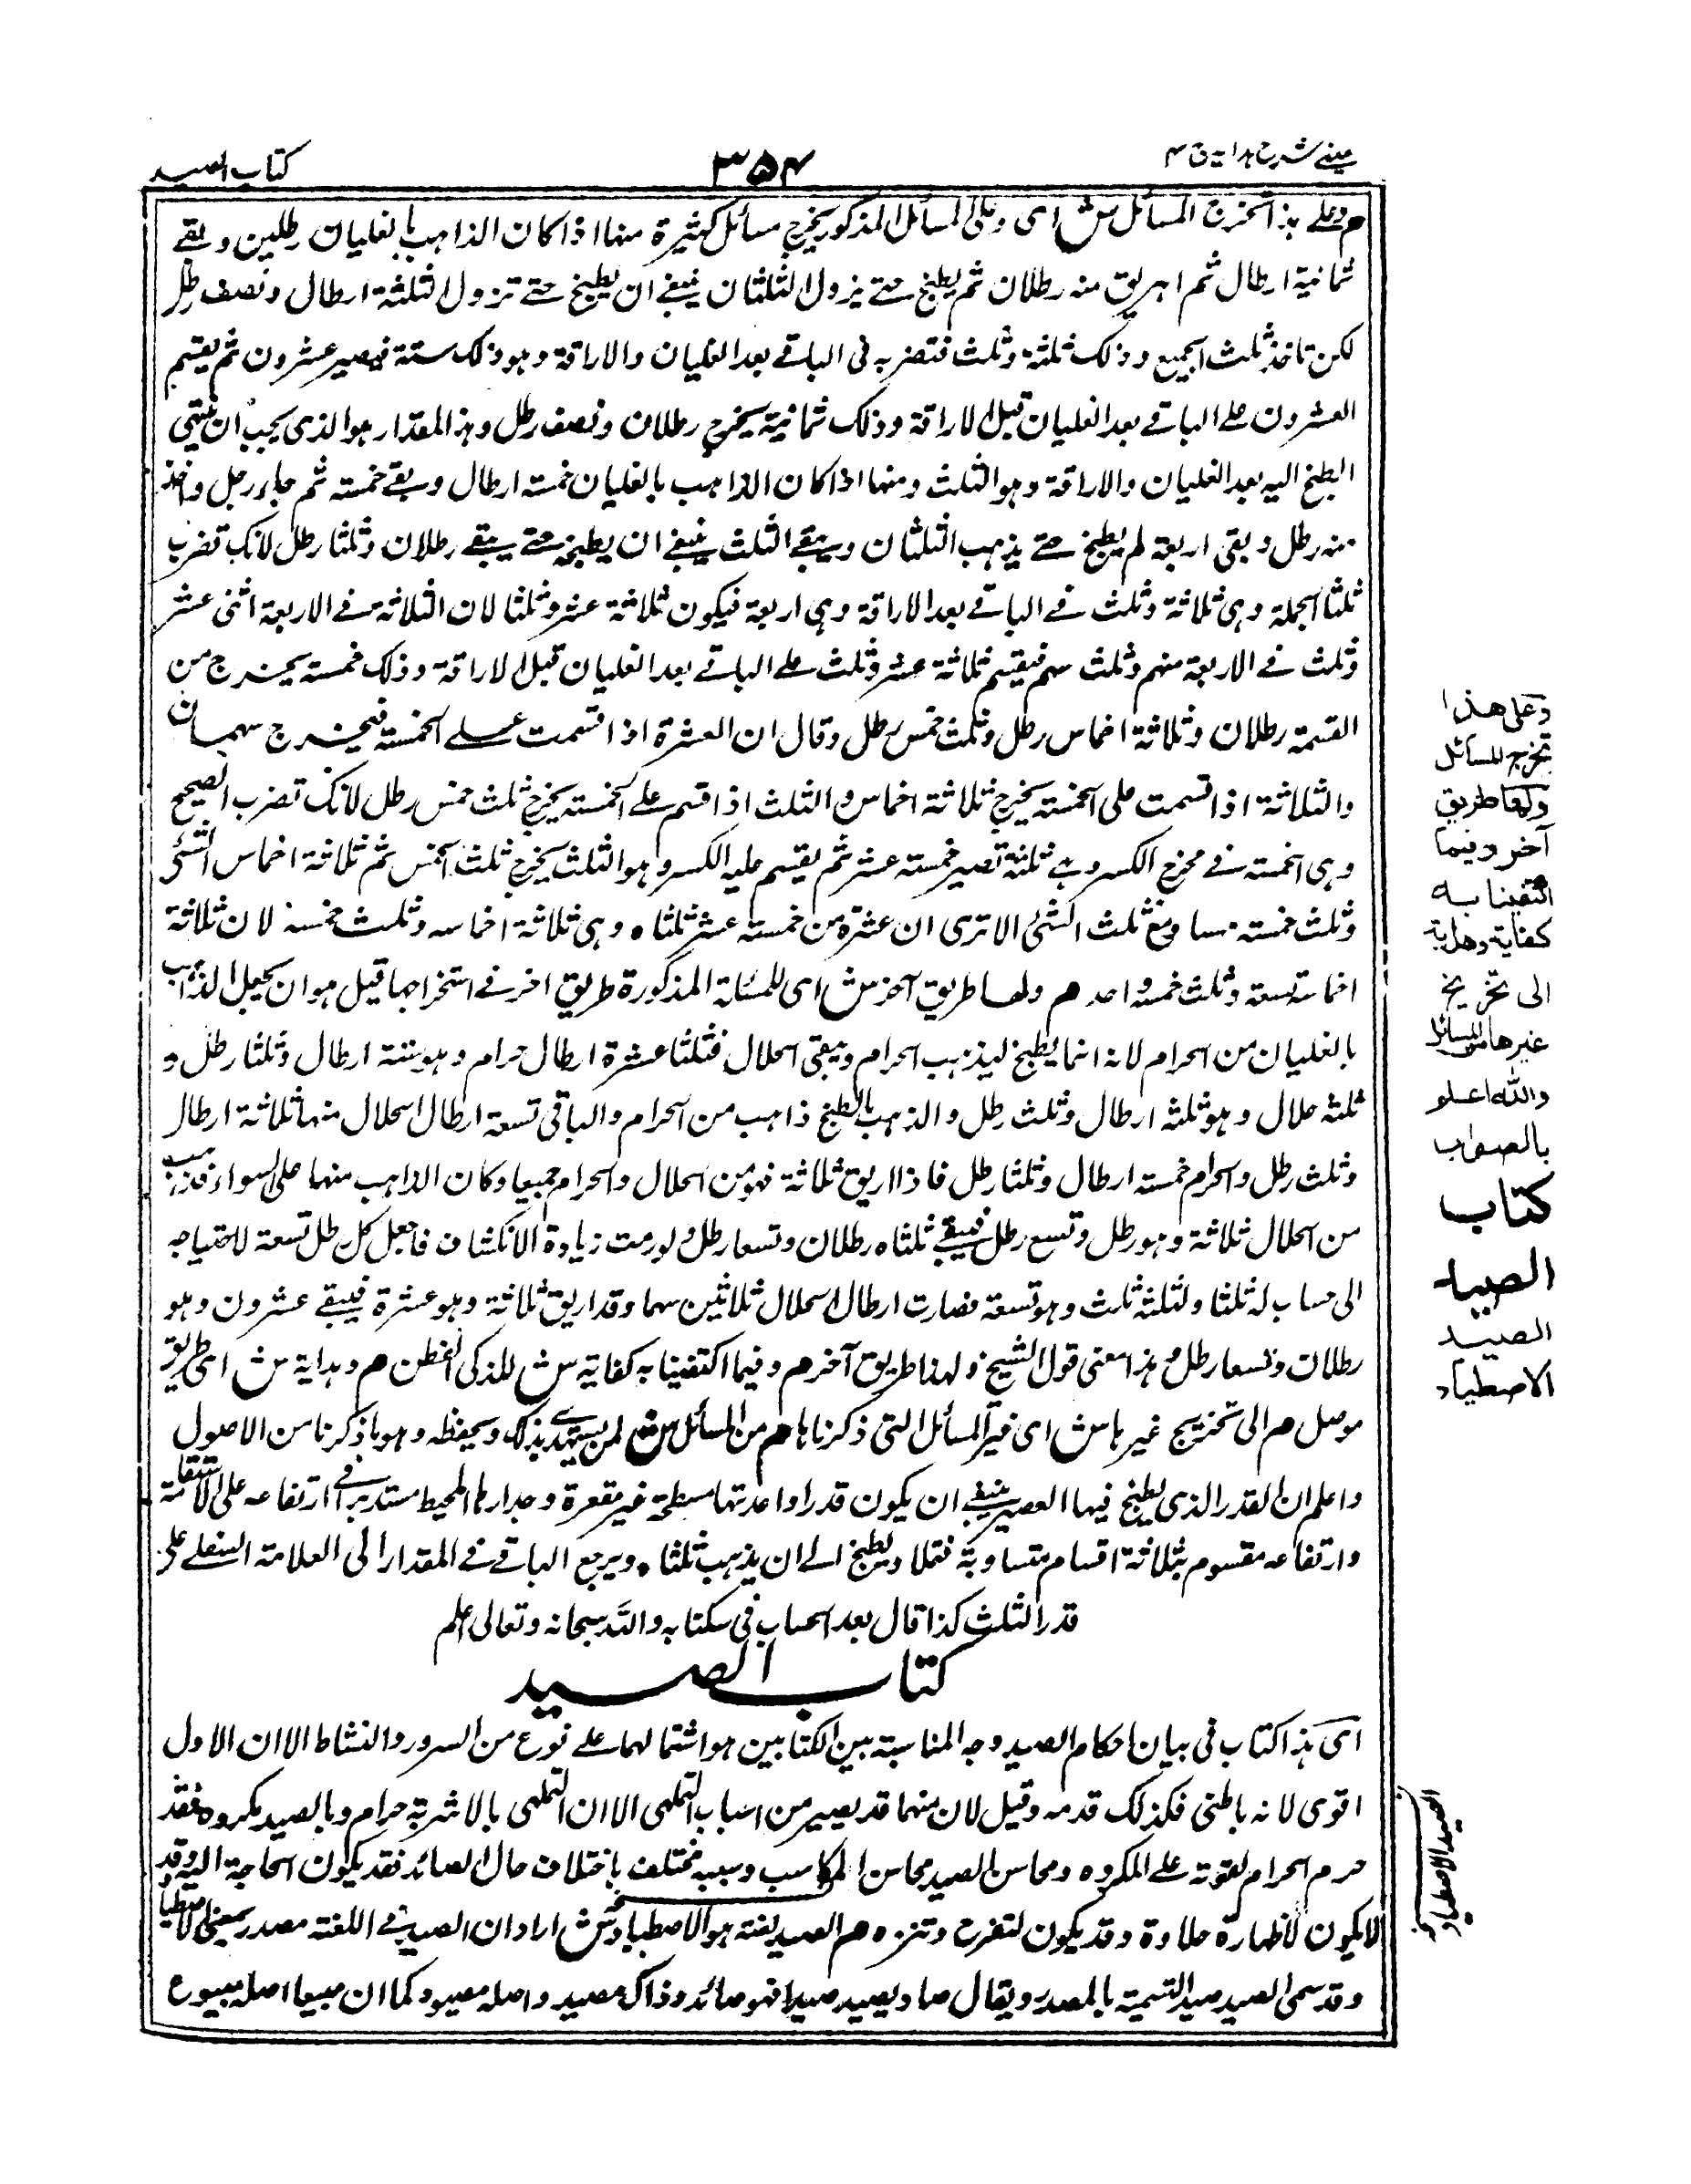 عینے شرح ہدایہ ج ۴
۳۵۴
کتاب الصید
م وعلى هذا تخرج المسائل ش اى وعلى المسائل المذكور يخرج مسائل كثيرة منها اذا كان الذاهب بالغليان رطلين وبقے
ثمانية ارطال ثم اهريق منه رطلان ثم يطبخ حتے يزول الثلثان ينبغے ان يطبخ حتے تزول الثلثة ارطال ونصف رطل
لكن تاخذ ثلث الجميع وذلك ثلثة وثلث فتضربه فى الباقے بعد الغليان والاراقة وهو ذلك ستة فيصير عشرون ثم يقسم
العشرون على الباقے بعد الغليان قبل الاراقة وذلك ثمانية يخرج رطلان ونصف رطل وهذا المقدار هو الذى يجب ان ينتهى
الطبخ اليه بعد الغليان والاراقة وهو الثلث ومنها اذا كان الذاهب بالغليان خمسة ارطال وبقے خمسة ثم جاء رجل واخذ
منه رطل وبقى اربعة لم يطبخ حتے يذهب الثلثان ويبقے الثلث ينبغے ان يطبخ حتے يبقے رطلان وثلثا رطل لانك تضرب
ثلثا الجملة وهى ثلاثة وثلث فے الباقے بعد الاراقة وهى اربعة فيكون ثلاثة عشر وثلثا لان الثلاثة فے الاربعة اثنى عشر
وثلث فے الاربعة سهم وثلث سهم فيقسم ثلاثة عشر وثلث على الباقے بعد الغليان قبل الاراقة وذلك خمسة يخرج من
القسمة رطلان وثلاثة اخماس رطل وثلث خمس رطل وقال ان العشرة اذا قسمت علے الخمسة فيخرج سهمان
والثلاثة اذا قسمت على الخمسة يخرج ثلاثة اخماس والثلث اذا قسم على الخمسة يخرج ثلث خمس رطل لانك تضرب الصحيح
وهى الخمسة فے مخرج الكسر وهے ثلثة تصير خمسة عشر ثم يقسم عليه الكسر وهو الثلث يخرج ثلث الخمس ثم ثلاثة اخماس الشئ
وثلث خمسة مساو مع ثلث الشئ الا ترى ان عشرة من خمسة عشر ثلثاه وهى ثلاثة اخماسه وثلث خمسه لان ثلاثة
اخماسه تسعة وثلث خمسه واحد م ولها طريق آخر ش اى للمسئلة المذكورة طريق اخر فے استخراجها قيل هو ان يجعل الذاهب
بالغليان من الحرام لانه انما يطبخ ليذهب الحرام ويبقى الحلال فثلثا عشرة ارطال حرام وهو ستة ارطال وثلثا رطل و
ثلثه حلال وهو ثلثة ارطال وثلث رطل والذهب بالطبخ ذاهب من الحرام والباقى تسعة ارطال الحلال منها ثلاثة ارطال
وثلث رطل والحرام خمسة ارطال وثلثا رطل فاذا اريق ثلاثة فهو من الحلال والحرام جميعا وكان الذاهب منهما على السواء فذهب
من الحلال ثلاثة وهو رطل وتسع رطل فيبقے ثلثاه رطلان وتسعا رطل ولو رمت زيادة الانكشاف فاجعل كل رطل تسعة لاحتياجه
الى حساب له ثلثا ولثلثه ثلث وهو تسعة فصارت ارطال الحلال ثلاثين سهما وقد اريق ثلاثة وهو عشرة فيبقے عشرون وهو
رطلان وتسعا رطل وهذا معنى قول الشيخ ولهذا طريق آخر م وفيما اكتفينا به كفاية ش للذكى الفطن م وهداية ش اى طريق
موصل م الى تخريج غيرها ش اى غير المسائل التى ذكرناها م من المسائل ش لمن يستهدے بذلك ويحفظه وهو ما ذكرنا من الاصول
واعلم ان القدر الذى يطبخ فيها العصير ينبغے ان يكون قدرا قاعدتها مسطحة غير مقعرة وجدارها المحيط مستدير فے ارتفاعه على الاستقامة
وارتفاعه مقسوم بثلاثة اقسام متساوية فتملا ويطبخ الے ان يذهب ثلثاه ويرجع الباقے فے المقدار الى العلامة السفلے على
قدر الثلث كذا قال بعد الحساب فى كتابه والله سبحانه وتعالى اعلم
كتاب الصيد
اى هذا كتاب فى بيان احكام الصيد وجه المناسبة بين الكتابين هو اشتمالهما على نوع من السرور والنشاط الا ان الاول
اقوى لانه باطنى فكذلك قدمه وقيل لان منهما قد يصير من اسباب التلهى الا ان التلهى بالاشربة حرام وبالصيد مكروه فقد
حرم الحرام لقوته على المكروه ومحاسن الصيد محاسن المكاسب وسببه مختلف باختلاف حال الصائد فقد يكون الحاجة اليه وقد
لا يكون لاظهاره جلادة وقد يكون لتفرج وتنزه م الصيد لغة هو الاصطياد ش اراد ان الصيد فے اللغة مصدر بمعنى الاصطياد
وقد سمى الصيد صيدا لتسمية بالمصدر ويقال صاد يصيد صيدا فهو صائد وذاك مصيد واصله مصيود كما ان مبيعا اصله مبيوع
وعلى هذا
تخرج المسائل
ولها طريق
آخر وفيما
اكتفينا به
كفاية وهداية
الى تخريج
غيرها من المسائل
والله اعلم
بالصواب
كتاب
الصيد
الصيد
الاصطياد
الصيد الاصطياد